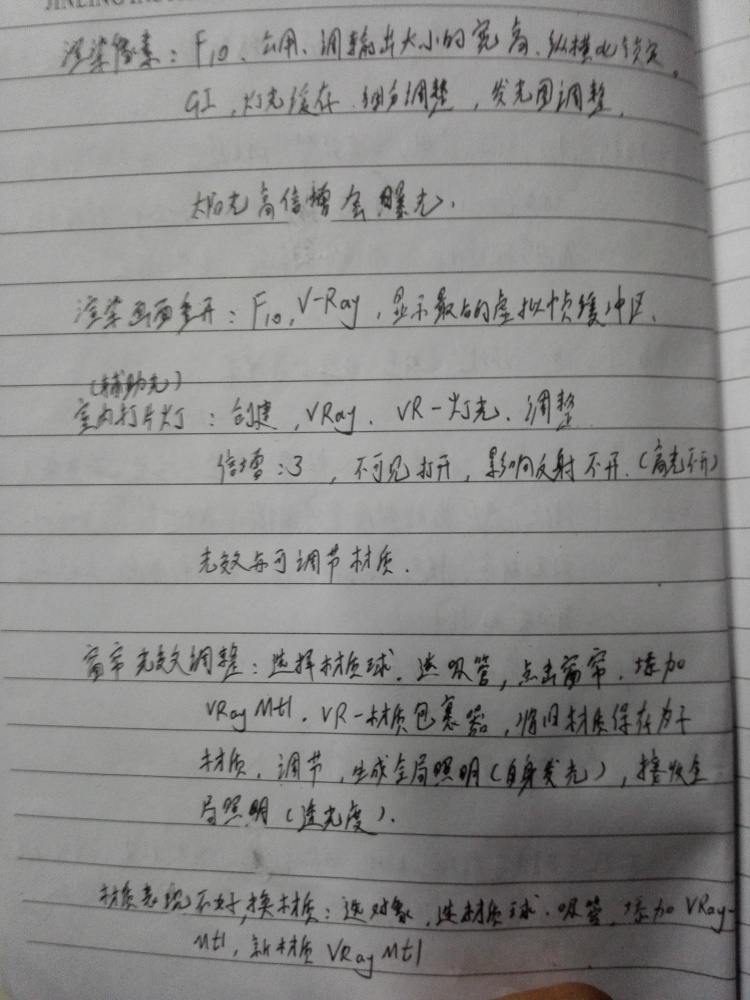 JINLING INS
渲染像素：F10、公用、调输出大小的宽高、纵横比锁定。
GI，灯光缓存.细分调整，发光图调整，
太阳光高倍增会曝光.
渲染画面多开：F10，V-Ray，显示最后的虚拟帧缓冲区.
（辅助光）
室内打片灯：创建，VRay、VR-灯光、调整
倍增：3，不可见打开，影响反射不开.（高光不开）
光效亦可调节材质.
窗帘光效调整：选择材质球.选吸管，点击窗帘.添加
VRay Mtl. VR-材质包裹器，将旧材质保存为子
材质.调节，生成全局照明（自身发光），接收全
局照明（透光度）.
材质表现不好，换材质：选对象，选材质球.吸管，添加VRay-
Mtl，新材质VRay Mtl